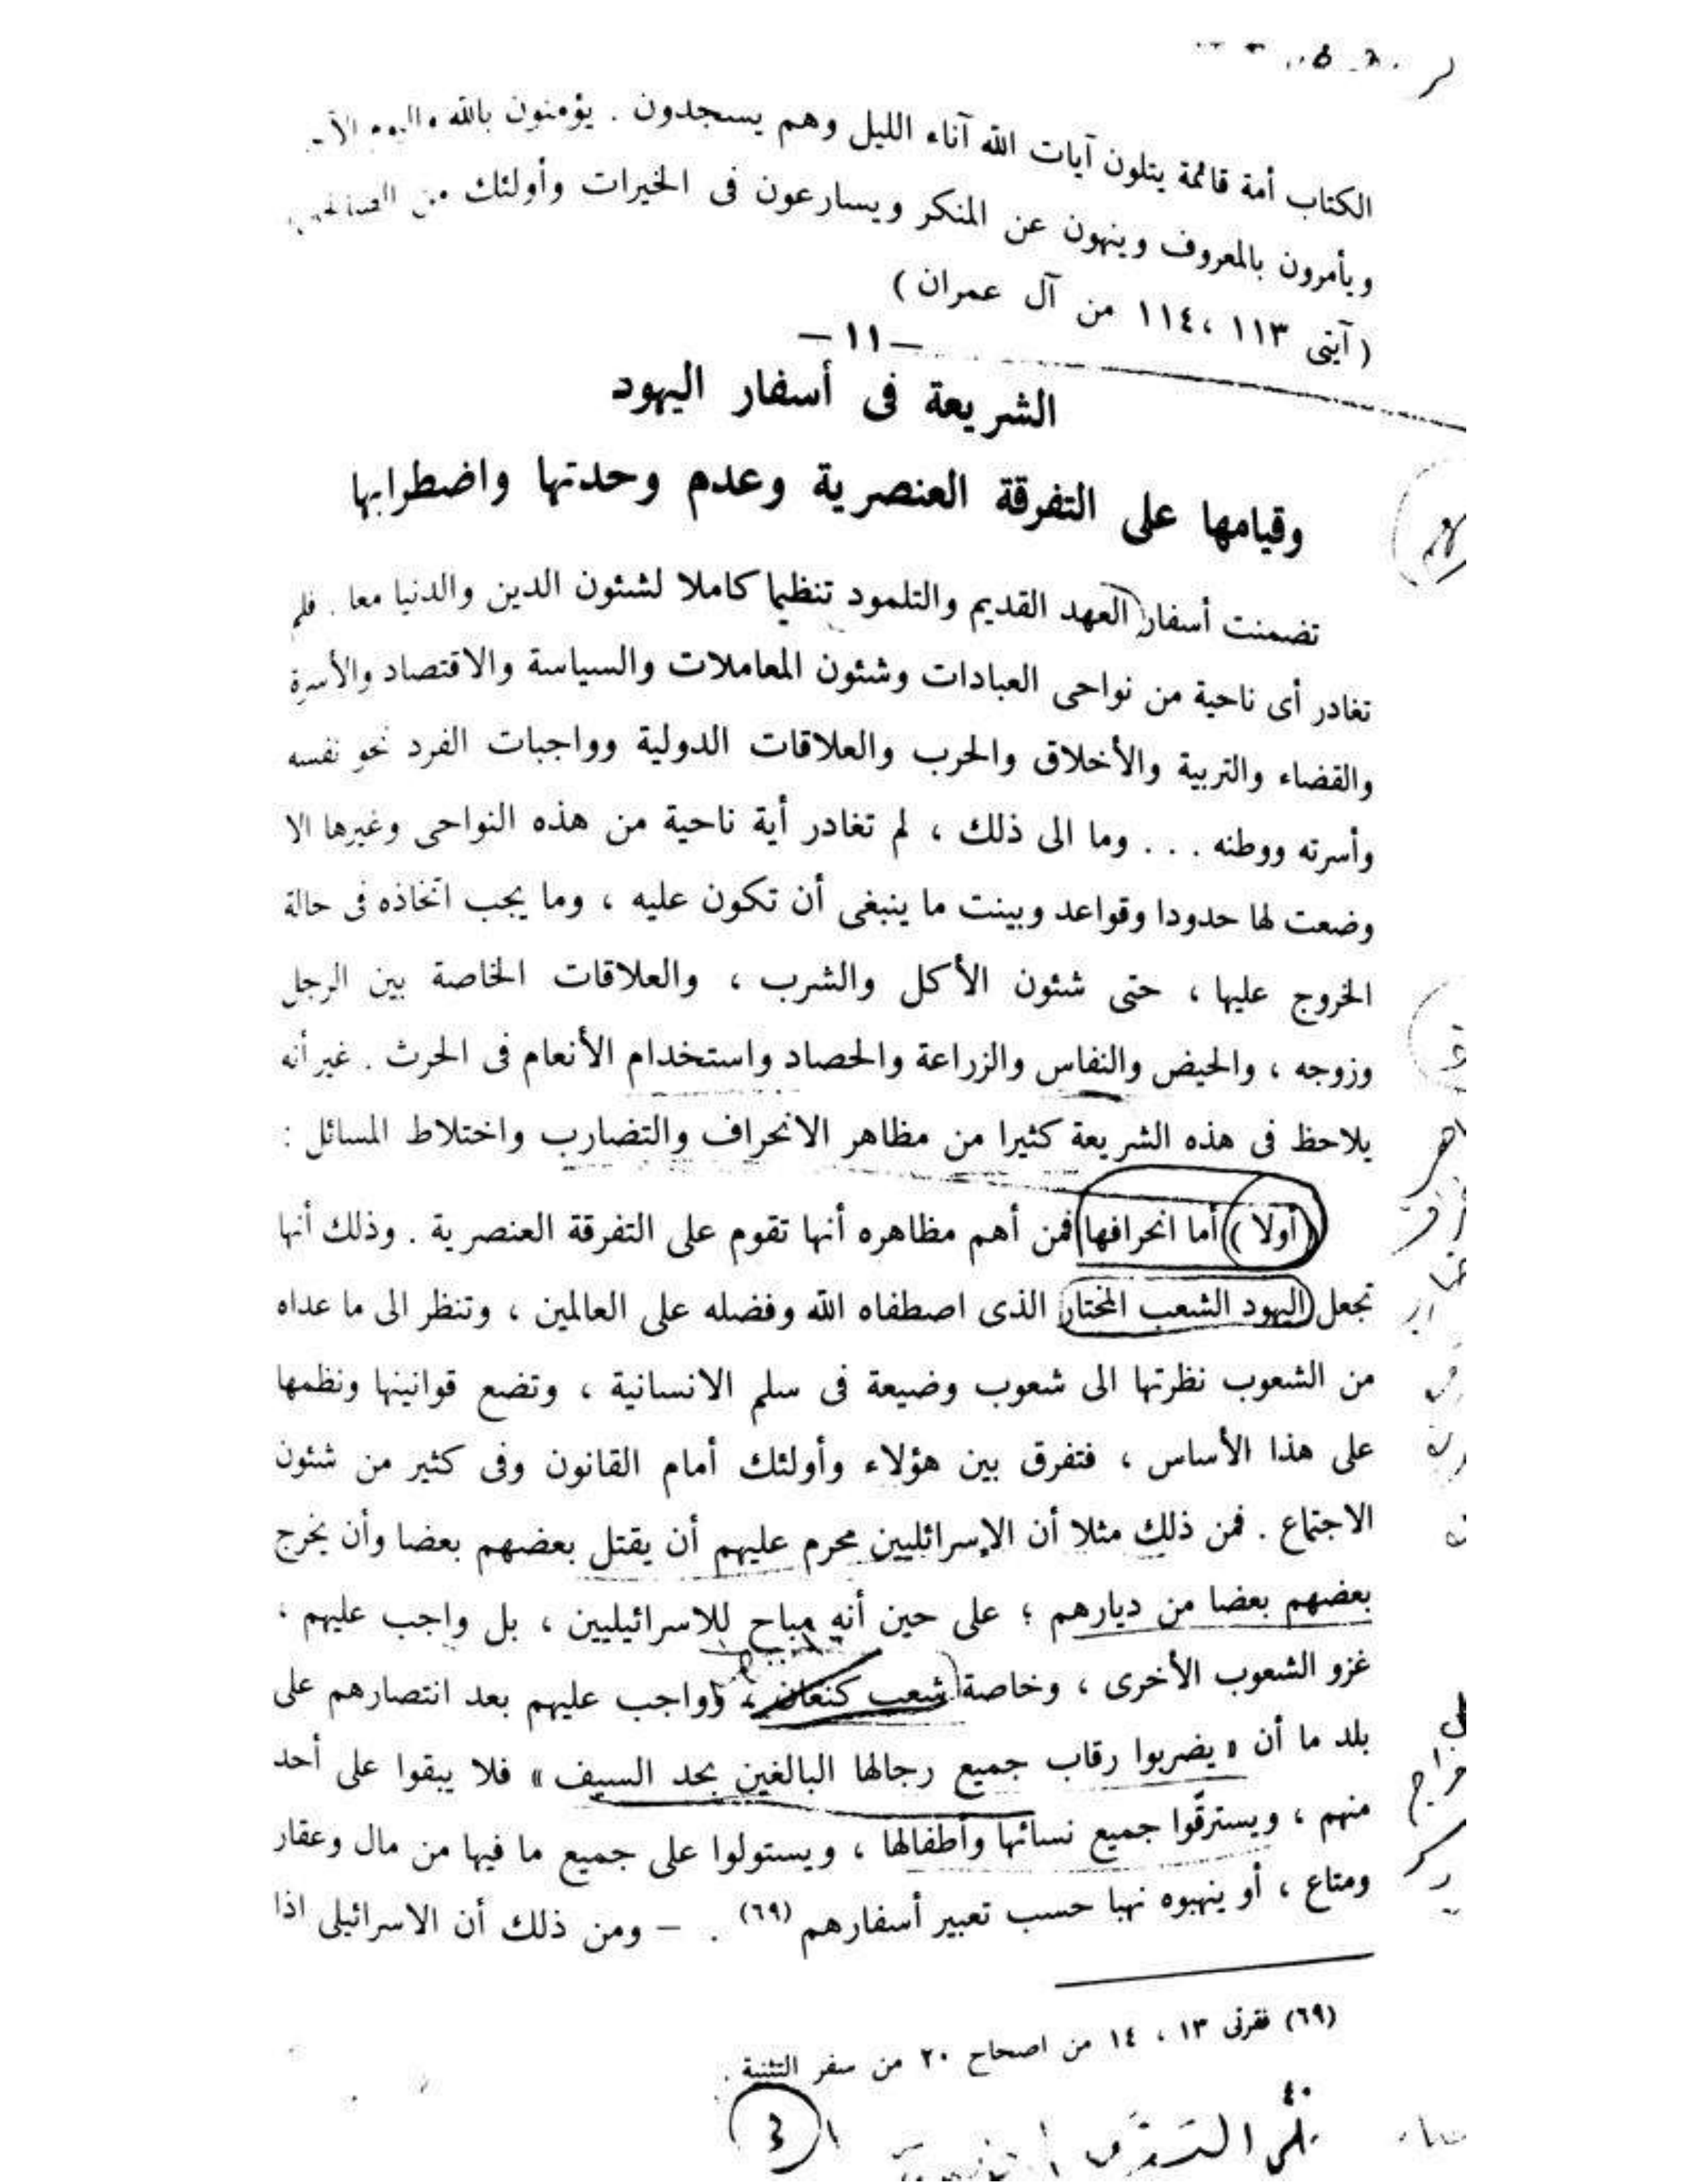 الكتاب أمة قائمة يتلون آيات الله آناء الليل وهم يسجدون . يؤمنون بالله واليوم
ويأمرون بالمعروف وينهون عن المنكر ويسارعون فى الخيرات وأولئك من الصالحين
( آيتى ١١٣ ، ١١٤ من آل عمران )
— ١١ —
الشريعة فى أسفار اليهود
وقيامها على التفرقة العنصرية وعدم وحدتها واضطرابها
تضمنت أسفار العهد القديم والتلمود تنظيما كاملا لشئون الدين والدنيا معا . فلم
تغادر أى ناحية من نواحى العبادات وشئون المعاملات والسياسة والاقتصاد والأسرة
والقضاء والتربية والأخلاق والحرب والعلاقات الدولية وواجبات الفرد نحو نفسه
وأسرته ووطنه . . . وما الى ذلك ، لم تغادر أية ناحية من هذه النواحى وغيرها الا
وضعت لها حدودا وقواعد وبينت ما ينبغى أن تكون عليه ، وما يجب اتخاذه فى حالة
الخروج عليها ، حتى شئون الأكل والشرب ، والعلاقات الخاصة بين الرجل
وزوجه ، والحيض والنفاس والزراعة والحصاد واستخدام الأنعام فى الحرث . غير أنه
يلاحظ فى هذه الشريعة كثيرا من مظاهر الانحراف والتضارب واختلاط المسائل :
( أولا ) أما انحرافها فمن أهم مظاهره أنها تقوم على التفرقة العنصرية . وذلك أنها
تجعل اليهود الشعب المختار الذى اصطفاه الله وفضله على العالمين ، وتنظر الى ما عداه
من الشعوب نظرتها الى شعوب وضيعة فى سلم الانسانية ، وتضع قوانينها ونظمها
على هذا الأساس ، فتفرق بين هؤلاء وأولئك أمام القانون وفى كثير من شئون
الاجتماع . فمن ذلك مثلا أن الإسرائليين محرم عليهم أن يقتل بعضهم بعضا وأن يخرج
بعضهم بعضا من ديارهم ؛ على حين أنه مباح للاسرائيليين ، بل واجب عليهم ،
غزو الشعوب الأخرى ، وخاصة شعب كنعان ، وواجب عليهم بعد انتصارهم على
بلد ما أن « يضربوا رقاب جميع رجالها البالغين بحد السيف » فلا يبقوا على أحد
منهم ، ويسترقّوا جميع نسائها وأطفالها ، ويستولوا على جميع ما فيها من مال وعقار
ومتاع ، أو ينهبوه نهبا حسب تعبير أسفارهم (٦٩) . – ومن ذلك أن الاسرائيلى اذا
(٦٩) فقرتى ١٣ ، ١٤ من اصحاح ٢٠ من سفر التثنية .
٤٠